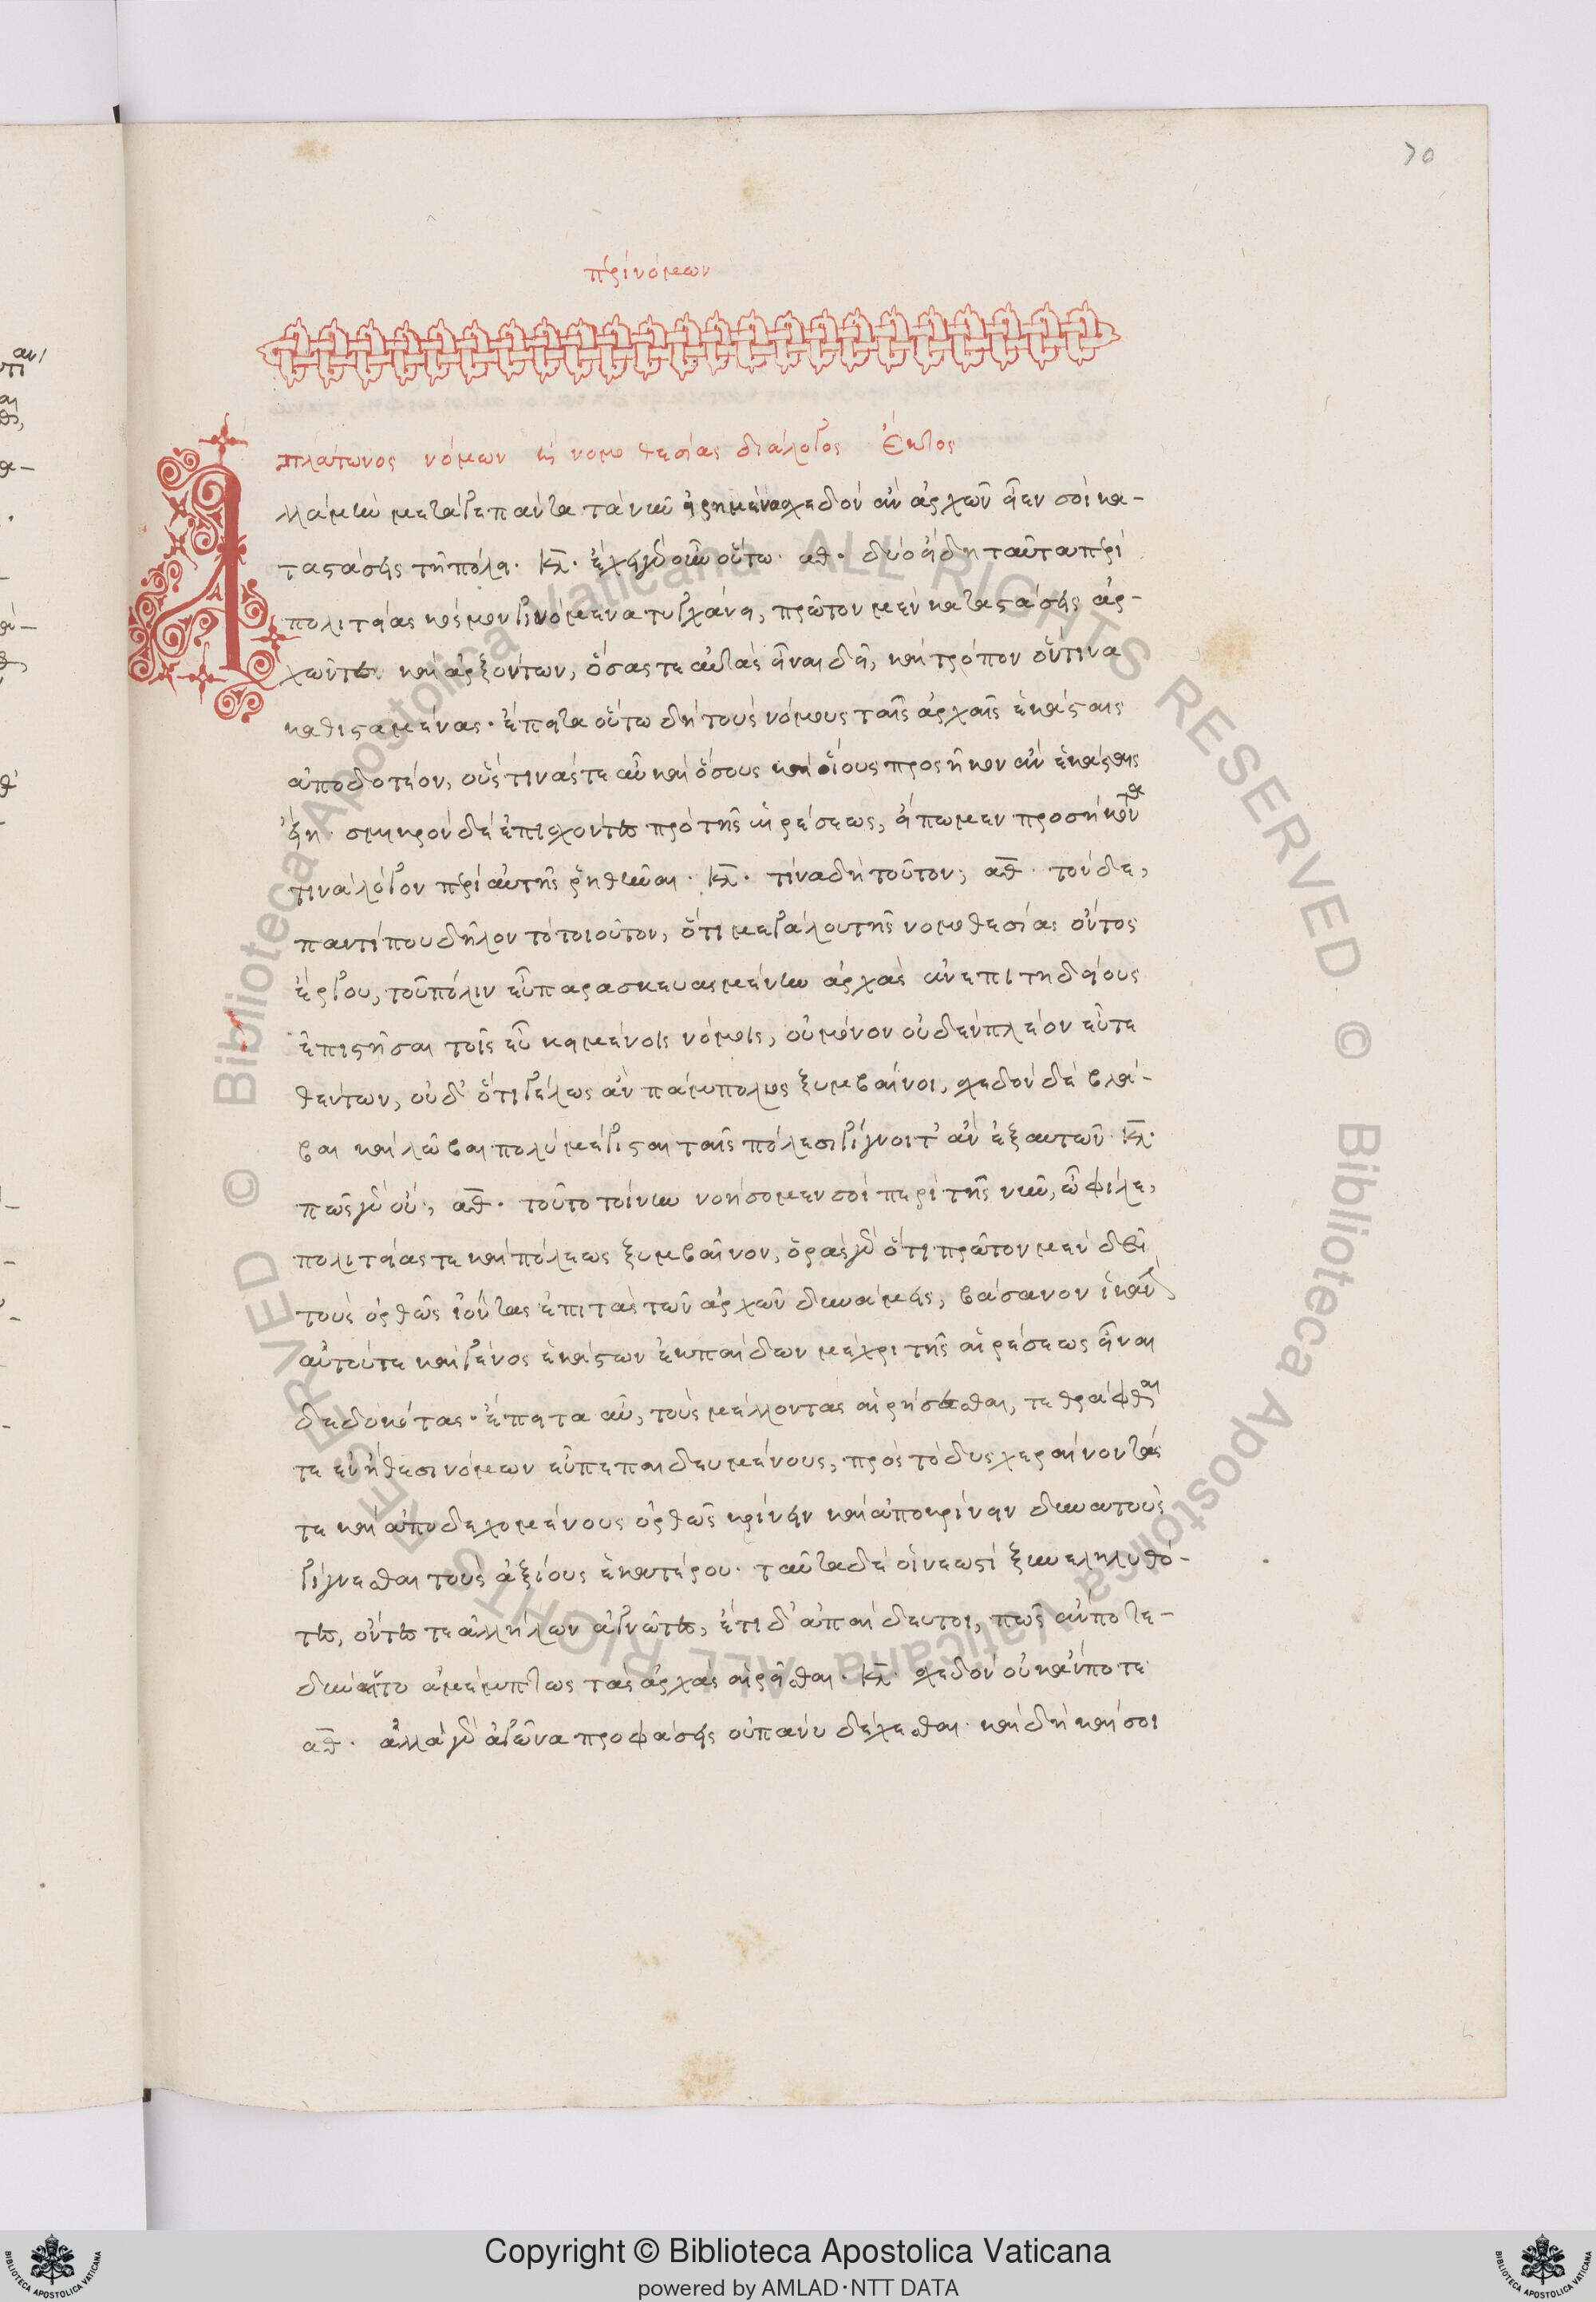 70
περὶ νόμων
πλάτωνος νόμων ἢ νομοθεσίας διάλογος ἕκτος
Ἀλλὰ μὴν μετά γε πάντα τὰ νῦν εἰρημένα σχεδὸν ἂν ἀρχῶν εἶεν σοὶ κα-
ταστάσεις τῆ πόλει. κλ. ἔχει γὰρ οὖν οὕτω. αθ. δύο εἴδη ταῦτα περὶ
πολιτείας κόσμον γινόμενα τυγχάνει, πρῶτον μὲν καταστάσεις ἀρ-
χῶν τε καὶ ἀρξόντων, ὅσας τε αὐτὰς εἶναι δεῖ, καὶ τρόπον ὅντινα
καθισταμένας. ἔπειτα οὕτω δὴ τοὺς νόμους ταῖς ἀρχαῖς ἑκάσταις
ἀποδοτέον, οὕς τινάς τε αὖ καὶ ὅσους καὶ οἵους προσῆκον ἂν ἑκάσταις
εἴη. σμικρὸν δὲ ἐπισχόντες πρὸ τῆς αἱρέσεως, εἴπωμεν προσήκοντά
τινα λόγον περὶ αὐτῆς ῥηθῆναι. κλ. τίνα δὴ τοῦτον; αθ. τόνδε,
παντί που δῆλον τὸ τοιοῦτον, ὅτι μεγάλου τῆς νομοθεσίας ὄντος
ἔργου, τοῦ πόλιν εὖ παρασκευασμένην ἀρχὰς ἀνεπιτηδείους
ἐπιστῆσαι τοῖς εὖ κειμένοις νόμοις, οὐ μόνον οὐδὲν πλέον εὖ τε
θέντων, οὐδ' ὅτι γέλως ἂν πάμπολυς ξυμβαίνοι, σχεδὸν δὲ βλά-
βαι καὶ λῶβαι πολὺ μέγισται ταῖς πόλεσι γίγνοιτ' ἂν ἐξ αυτῶν. κλ.
πῶς γὰρ οὔ; αθ. τοῦτο τοίνυν νοήσομεν σοὶ περὶ τῆς νῦν, ὦ φίλε,
πολιτείας τε καὶ πόλεως ξυμβαῖνον, ὁρᾶς γὰρ ὅτι πρῶτον μὲν δεῖ
τοὺς ὀρθῶς ἰόντας ἐπὶ τὰς τῶν ἀρχῶν δυνάμεις, βάσανον ἱκανὴν
αὐτούς τε καὶ γένος ἑκάστων ἐκ παίδων μέχρι τῆς αἱρέσεως εἶναι
δεδωκότας. ἔπειτα αὖ, τοὺς μέλλοντας αἱρήσεσθαι, τεθράφθαι
τε ἐν ἤθεσι νόμων εὖ πεπαιδευμένους, πρὸς τὸ δυσχεραίνοντάς
τε καὶ ἀποδεχομένους ὀρθῶς κρίνειν καὶ ἀποκρίνειν δυνατοὺς
γίγνεσθαι τοὺς ἀξίους ἑκατέρου. ταῦτα δὲ οἱ νεωστὶ ξυνεληλυθό-
τες, ὄντες τε ἀλλήλων ἀγνῶτες, ἔτι δ' ἀπαίδευτοι, πῶς ἄν ποτε
δύναιντο ἀμέμπτως τὰς ἀρχὰς αἱρεῖσθαι. κλ. σχεδὸν οὐκ ἄν ποτε.
αθ. ἀλλὰ γὰρ ἀγῶνα προφάσεις οὐ πάνυ δέχεσθαι. καὶ δὴ καὶ σοι
Copyright © Biblioteca Apostolica Vaticana
powered by AMLAD·NTT DATA